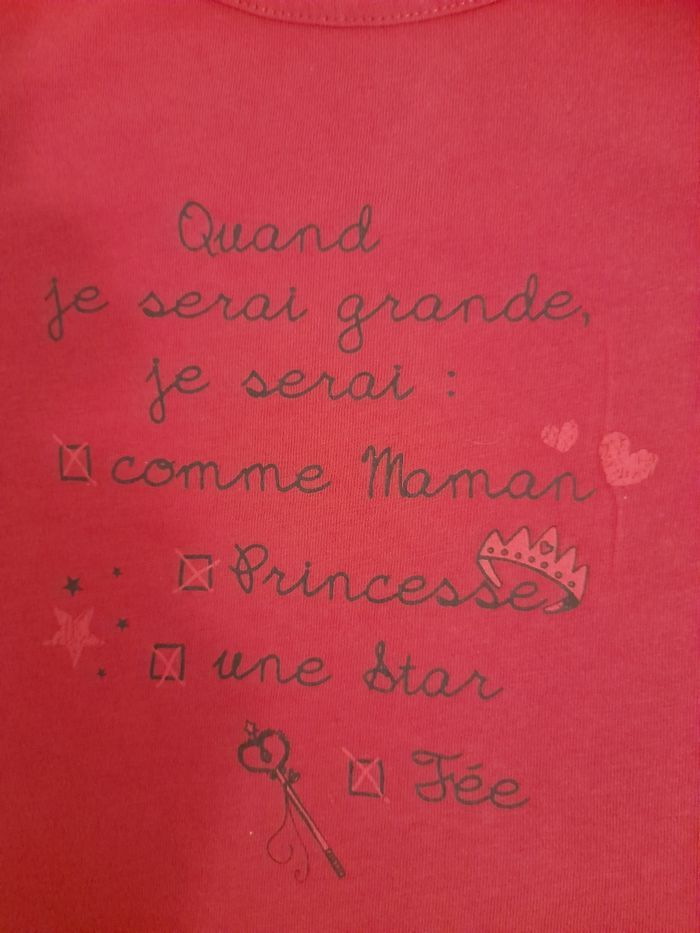 Quand
je serai grande,
je serai :
comme Maman
Princesse
une Star
Fée